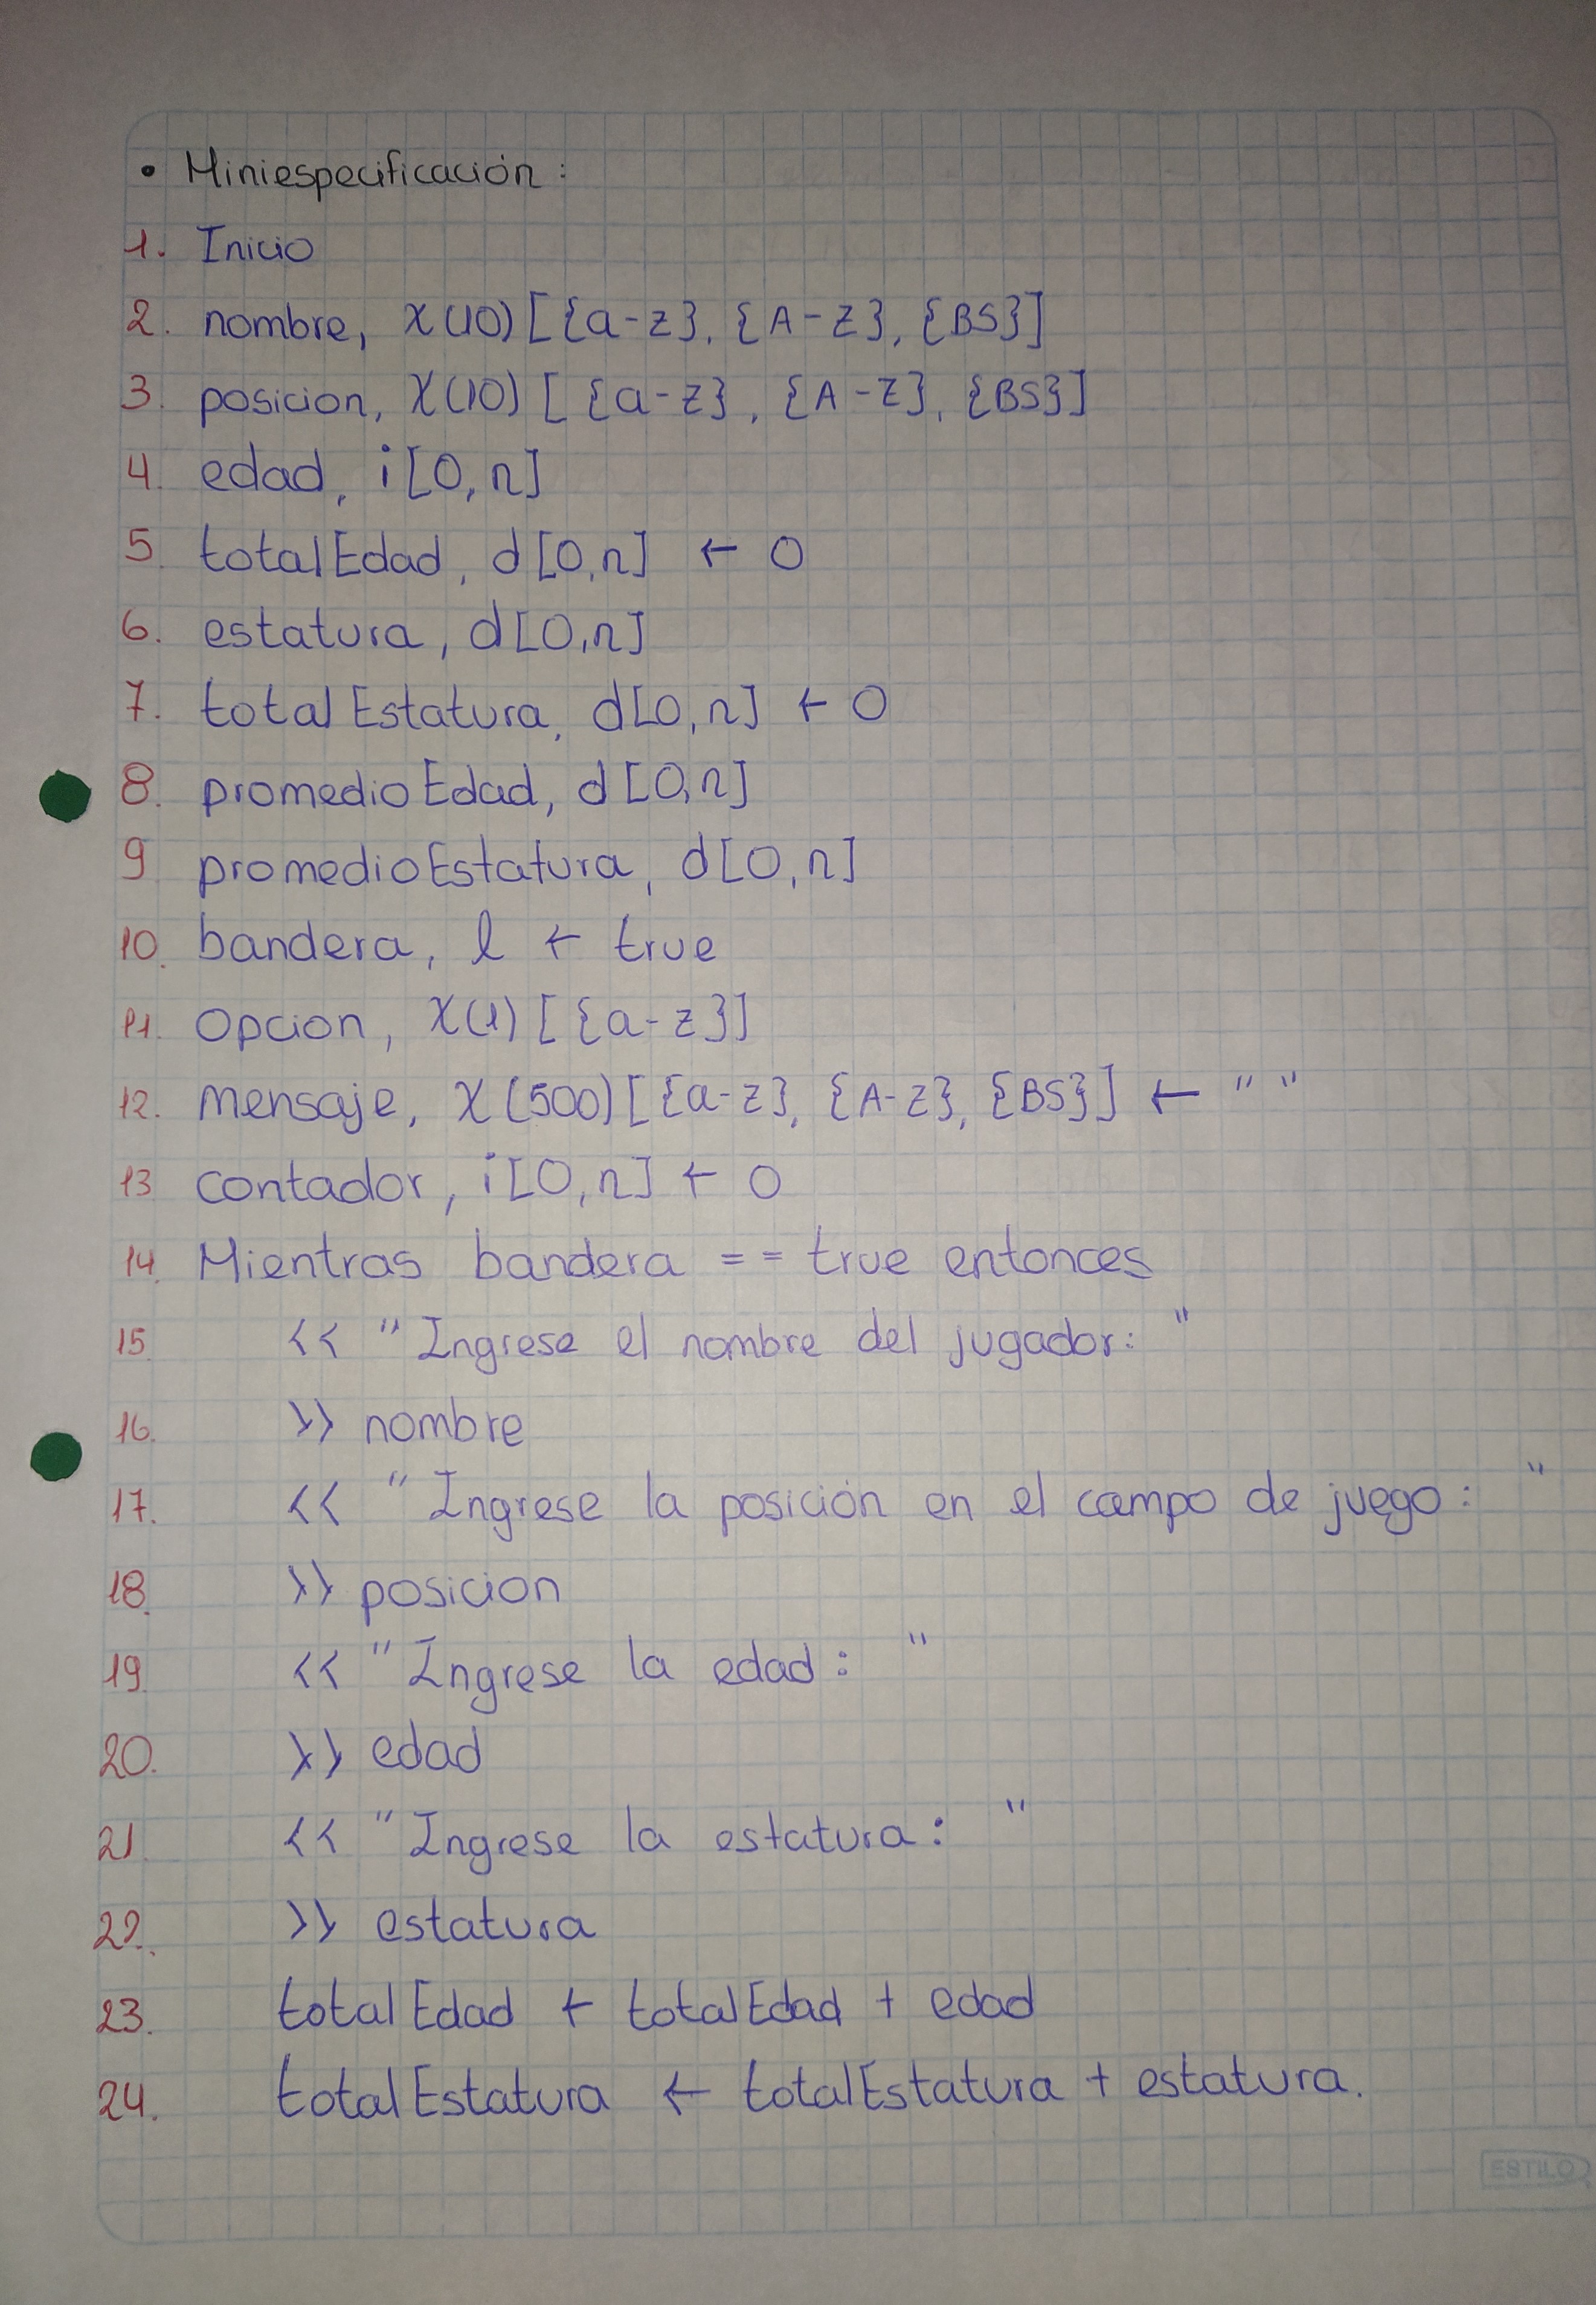 • Miniespecificación:
1. Inicio
2. nombre, X(10)[{a-z}, {A-Z}, {BS}]
3. posicion, X(10)[{a-z}, {A-Z}, {BS}]
4. edad, i[0,n]
5. totalEdad, d[0,n] ← 0
6. estatura, d[0,n]
7. totalEstatura, d[0,n] ← 0
8. promedioEdad, d[0,n]
9. promedioEstatura, d[0,n]
10. bandera, l ← true
11. opcion, X(1)[{a-z}]
12. mensaje, X(500)[{a-z}, {A-Z}, {BS}] ← " "
13. contador, i[0,n] ← 0
14. Mientras bandera == true entonces
15. << "Ingrese el nombre del jugador: "
16. >> nombre
17. << "Ingrese la posición en el campo de juego: "
18. >> posicion
19. << "Ingrese la edad: "
20. >> edad
21. << "Ingrese la estatura: "
22. >> estatura
23. totalEdad ← totalEdad + edad
24. totalEstatura ← totalEstatura + estatura.
ESTILO